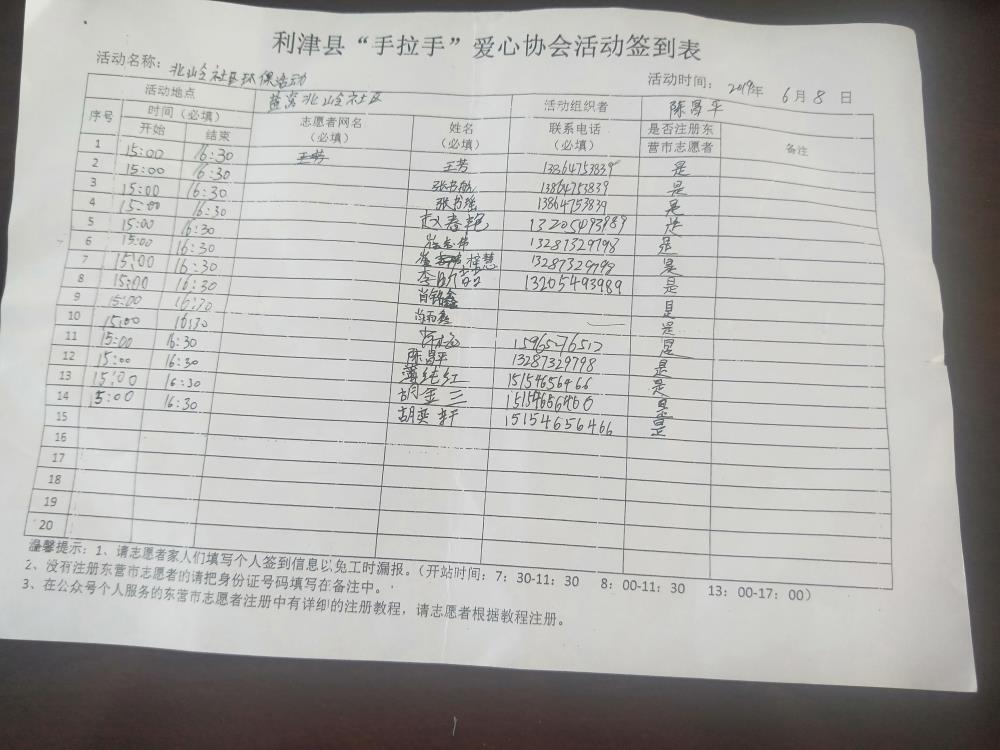 利津县“手拉手”爱心协会活动签到表
活动名称：北岭社区环保活动 活动时间：2019年 6月 8日
活动地点 北岭社区 活动组织者 陈昌平
序号 时间（必填） 志愿者网名（必填） 姓名（必填） 联系电话（必填） 是否注册东营市志愿者 备注
开始 结束
1 15:00 16:30 王芳 王芳 13864753839 是
2 15:00 16:30 张书航 13864753839 是
3 15:00 16:30 张书瑶 13864753839 是
4 15:00 16:30 赵春艳 13205493989 是
5 15:00 16:30 13287329798 是
6 15:00 16:30 梓慧 13287329798 是
7 15:00 16:30 李 13205493989 是
8 15:00 16:30 肖锦鑫 是
9 15:00 16:30 肖雨鑫 是
10 15:00 16:30 是
11 15:00 16:30 陈昌平 13287329798 是
12 15:00 16:30 薄纯红 15154656466 是
13 15:00 16:30 胡金三 是
14 5:00 16:30 胡奕轩 15154656466 是
15
16
17
18
19
20
温馨提示：1、请志愿者家人们填写个人签到信息以免工时漏报。（开站时间：7：30-11：30 8：00-11：30 13：00-17：00）
2、没有注册东营市志愿者的请把身份证号码填写在备注中。
3、在公众号个人服务的东营市志愿者注册中有详细的注册教程，请志愿者根据教程注册。